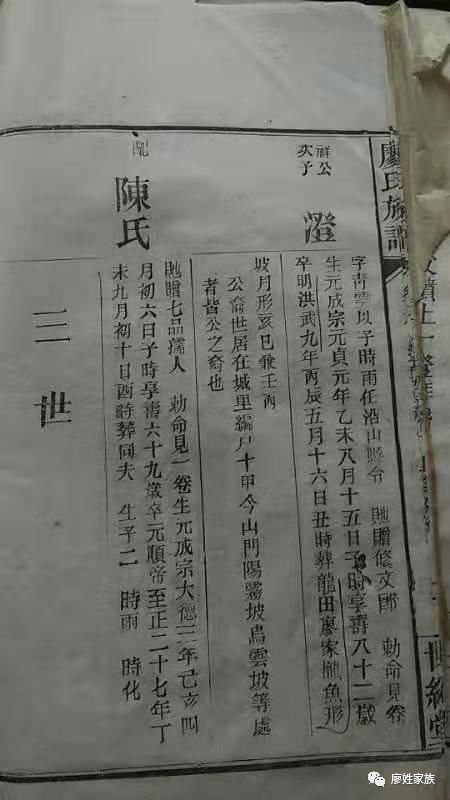 廖氏族譜
世綵堂
祥公
次子
澄
字靑雲以子時雨任沿山縣令 貤贈修文郎 勅命見卷
生元成宗元貞元年乙未八月十五日子時享壽八十二歲
卒明洪武九年丙辰五月十六日丑時葬龍田廖家 魚形
坡月形亥巳兼壬丙
公裔世居在城里編戶十甲今山門陽霧坡烏雲坡等處
者皆公之裔也
配
陳氏
貤贈七品孺人 勅命見一卷生元成宗大德三年己亥四
月初六日子時享壽六十九歲卒元順帝至正二十七年丁
未九月初十日酉時葬同夫 生子二 時雨 時化
三世
廖姓家族